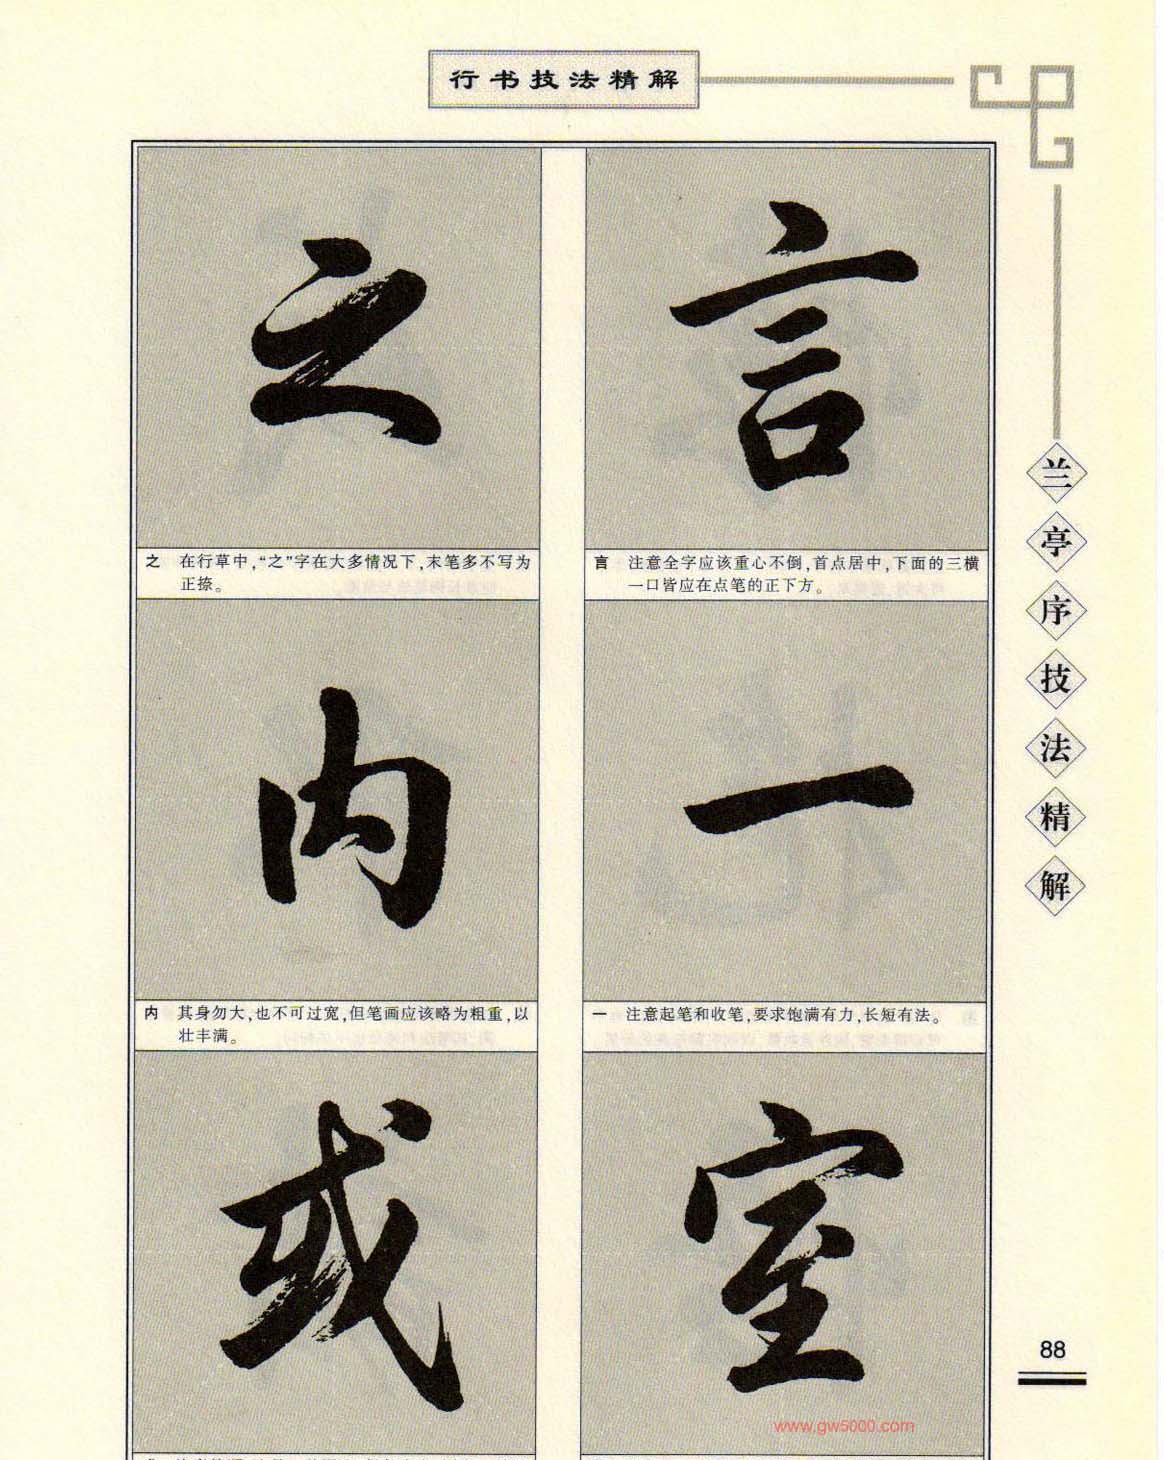 行书技法精解
言
言 注意全字应该重心不倒,首点居中,下面的三横
一口皆应在点笔的正下方。
一
一 注意起笔和收笔,要求饱满有力,长短有法。
室
之
之 在行草中,“之”字在大多情况下,末笔多不写为
正捺。
内
内 其身勿大,也不可过宽,但笔画应该略为粗重,以
壮丰满。
或
兰亭序技法精解
88
www.gw5000.com